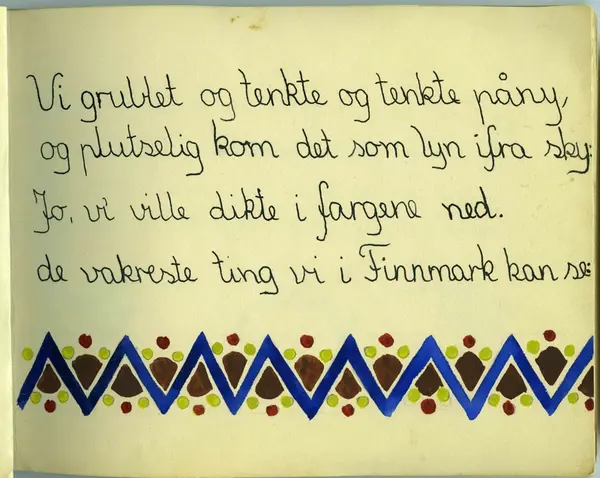 Vi grublet og tenkte og tenkte påny,
og plutselig kom det som lyn ifra sky:
Jo, vi ville dikte i fargene ned.
de vakreste ting vi i Finnmark kan se: